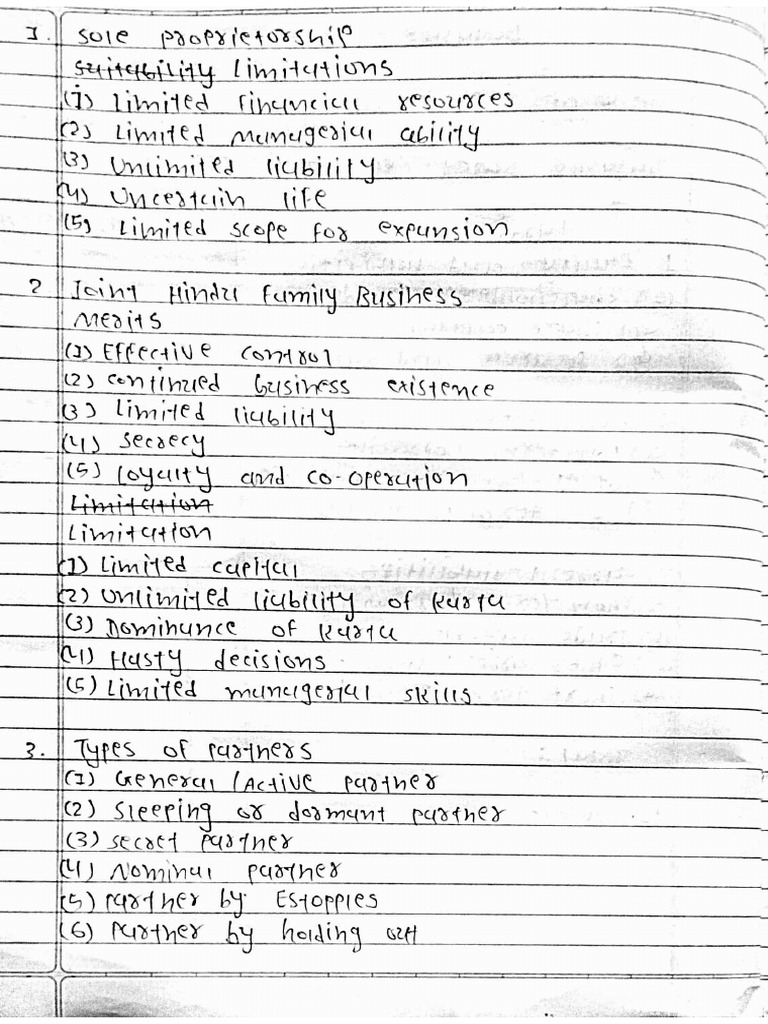 1. Sole proprietorship
Suitability Limitations
(1) Limited Financial resources
(2) Limited managerial ability
(3) Unlimited liability
(4) Uncertain life
(5) Limited scope for expansion
2 Joint Hindu Family Business
Merits
(1) Effective control
(2) continued business existence
(3) Limited liability
(4) Secrecy
(5) Loyalty and co-operation
Limitation
Limitation
(1) Limited capital
(2) Unlimited liability of Karta
(3) Dominance of Karta
(4) Hasty decisions
(5) Limited managerial skills
3. Types of Partners
(1) General / Active partner
(2) Sleeping or dormant partner
(3) Secret Partner
(4) Nominal partner
(5) Partner by Estopples
(6) Partner by holding out